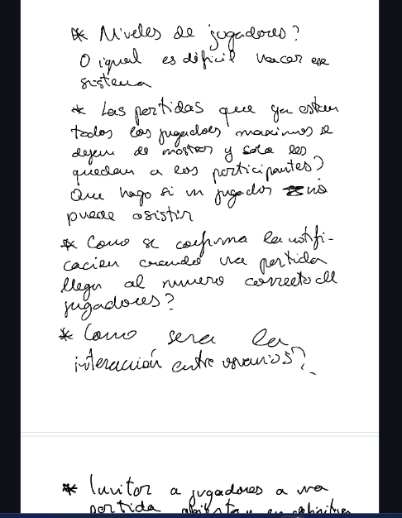 * Niveles de jugadores?
O igual es dificil hacer ese
sistema
* Las partidas que ya esten
todos los jugadores maximos se
dejen de mostrar y solo les
quedan a los participantes?
Que hago si un jugador no
puede asistir
* Como se confirma la notifi-
cacion cuando una partida
llega al numero correcto de
jugadores?
* Como sera la
interacción entre usuarios?
* Invitar a jugadores a una
partida abierta y en